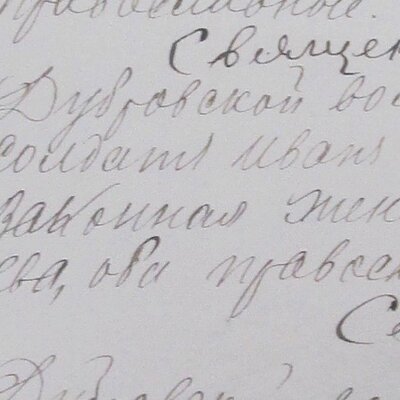 православной.
Священ
Дубровской вол
солдатъ Иванъ
законная жен
ева, оба правосл
Св
Дубровской во